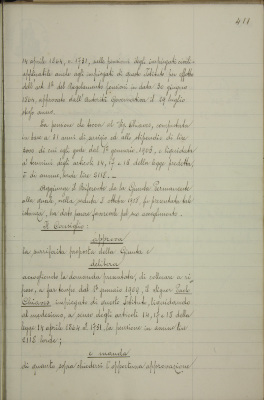 411
14 aprile 1864, n. 1731, sulle pensioni degli impiegati civili
applicabile anche agli impiegati di questo Istituto per effetto
dell'art. 1° del Regolamento pensioni in data 30 giugno
1864, approvato dall'Autorità Governativa il 29 luglio
stesso anno.
La pensione che tocca al Sig. Chiaves, computata
in base a 31 anni di servizio ed allo stipendio di lire
di cui egli gode dal 1° gennaio 1903, e liquidata
a termini degli articoli 14, 17 e 18 della legge predetta,
è di annue lorde lire 2115. —
Aggiunge il Referente che la Giunta Permanente
alla quale, nella seduta 2 ottobre 1908, fu presentata tale
istanza, ha dato parere favorevole pel suo accoglimento.
Il Consiglio:
approva
la surriferita proposta della Giunta e
delibera
accogliendo la domanda presentata, di collocare a ri-
poso, a far tempo dal 1° gennaio 1909, il signor
Chiaves impiegato di questo Istituto, liquidando
al medesimo, a senso degli articoli 14, 17 e 18 della
legge 14 aprile 1864 n. 1731, la pensione in annue lire
2115 lorde;
e manda
di quanto sopra chiedersi l'opportuna approvazione